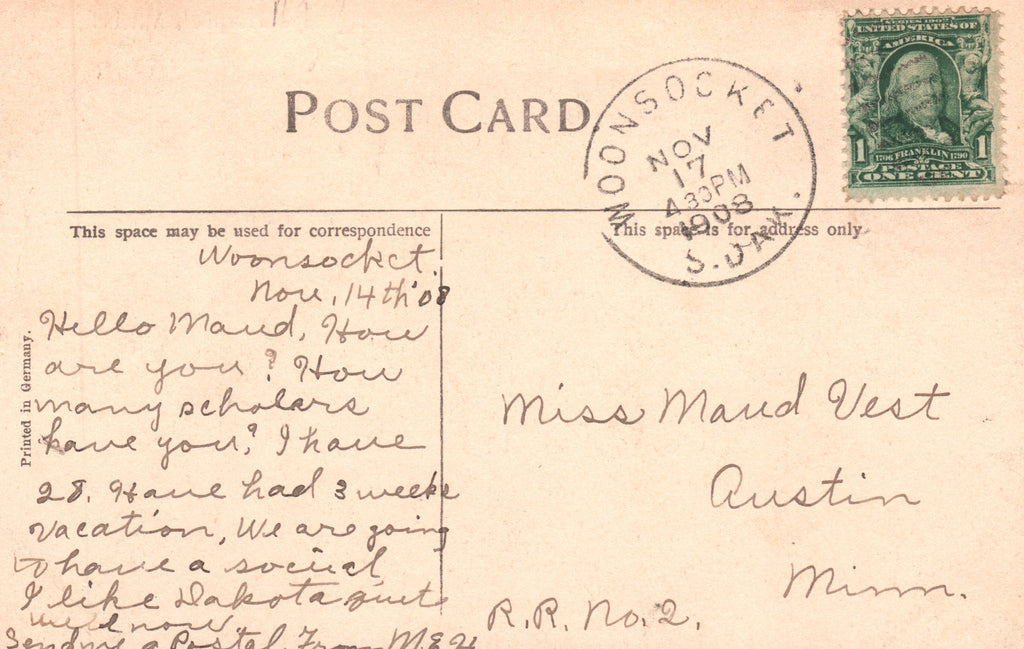 POST CARD
WOONSOCKET
NOV
17
4 30 PM
1908
S. DAK.
SERIES 1902
UNITED STATES OF
AMERICA
1 1
1706 FRANKLIN 1790
POSTAGE
ONE CENT
This space may be used for correspondence
This space is for address only
Printed in Germany.
Woonsocket
Nov. 14th '08
Hello Maud, How
are you? How
many scholars
have you? I have
28. Have had 3 weeks
vacation, We are going
to have a social
I like Dakota quite
well now.
Send me a Postal. From M.E.H
Miss Maud Vest
Austin
Minn.
R.R. No. 2.